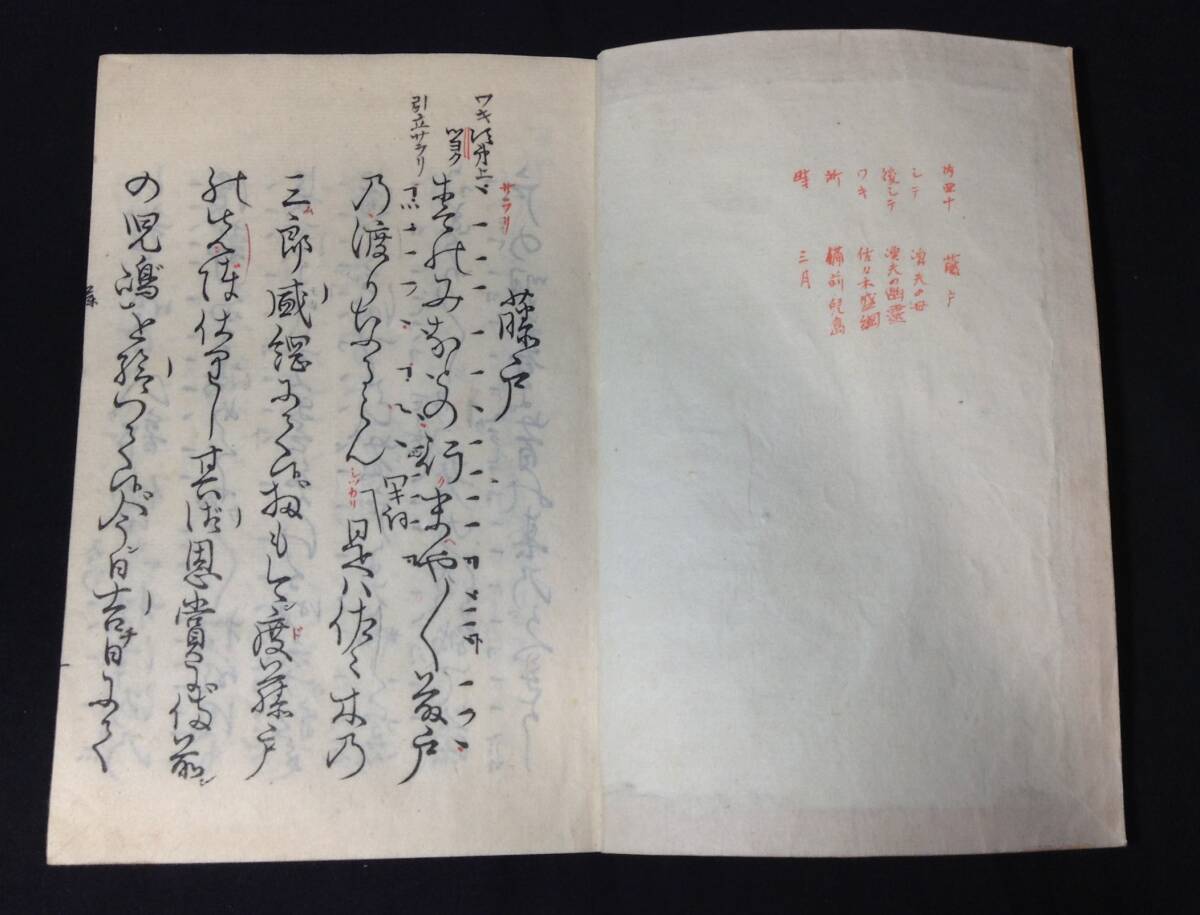 内四十 藤戸
シテ 漁夫の母
後シテ 漁夫の幽霊
ワキ 佐々木盛綱
所 備前児島
時 三月
藤戸
ワキ次第上
ツヨク
サラリ
春のみなとの行末や〳〵藤戸
引立サラリ
乃渡りなるらん
しつかり
是ハ佐々木乃
三郎盛綱にて候扨も今度藤戸
の先陣仕りし其御恩賞に備前
の児嶋を給つて候今日吉日にて
藤